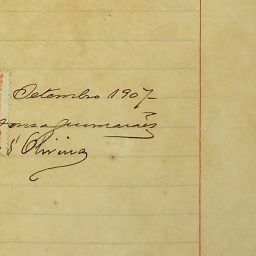 Setembro 1907
Guimarães
d'Oliveira